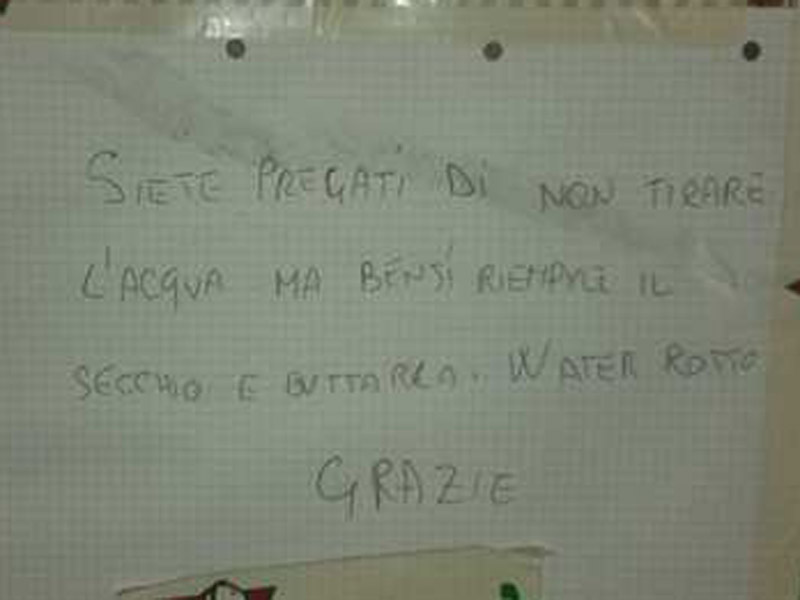 SIETE PREGATI DI NON TIRARE
L'ACQUA MA BENSÍ RIEMPIRE IL
SECCHIO E BUTTARLA. WATER ROTTO
GRAZIE